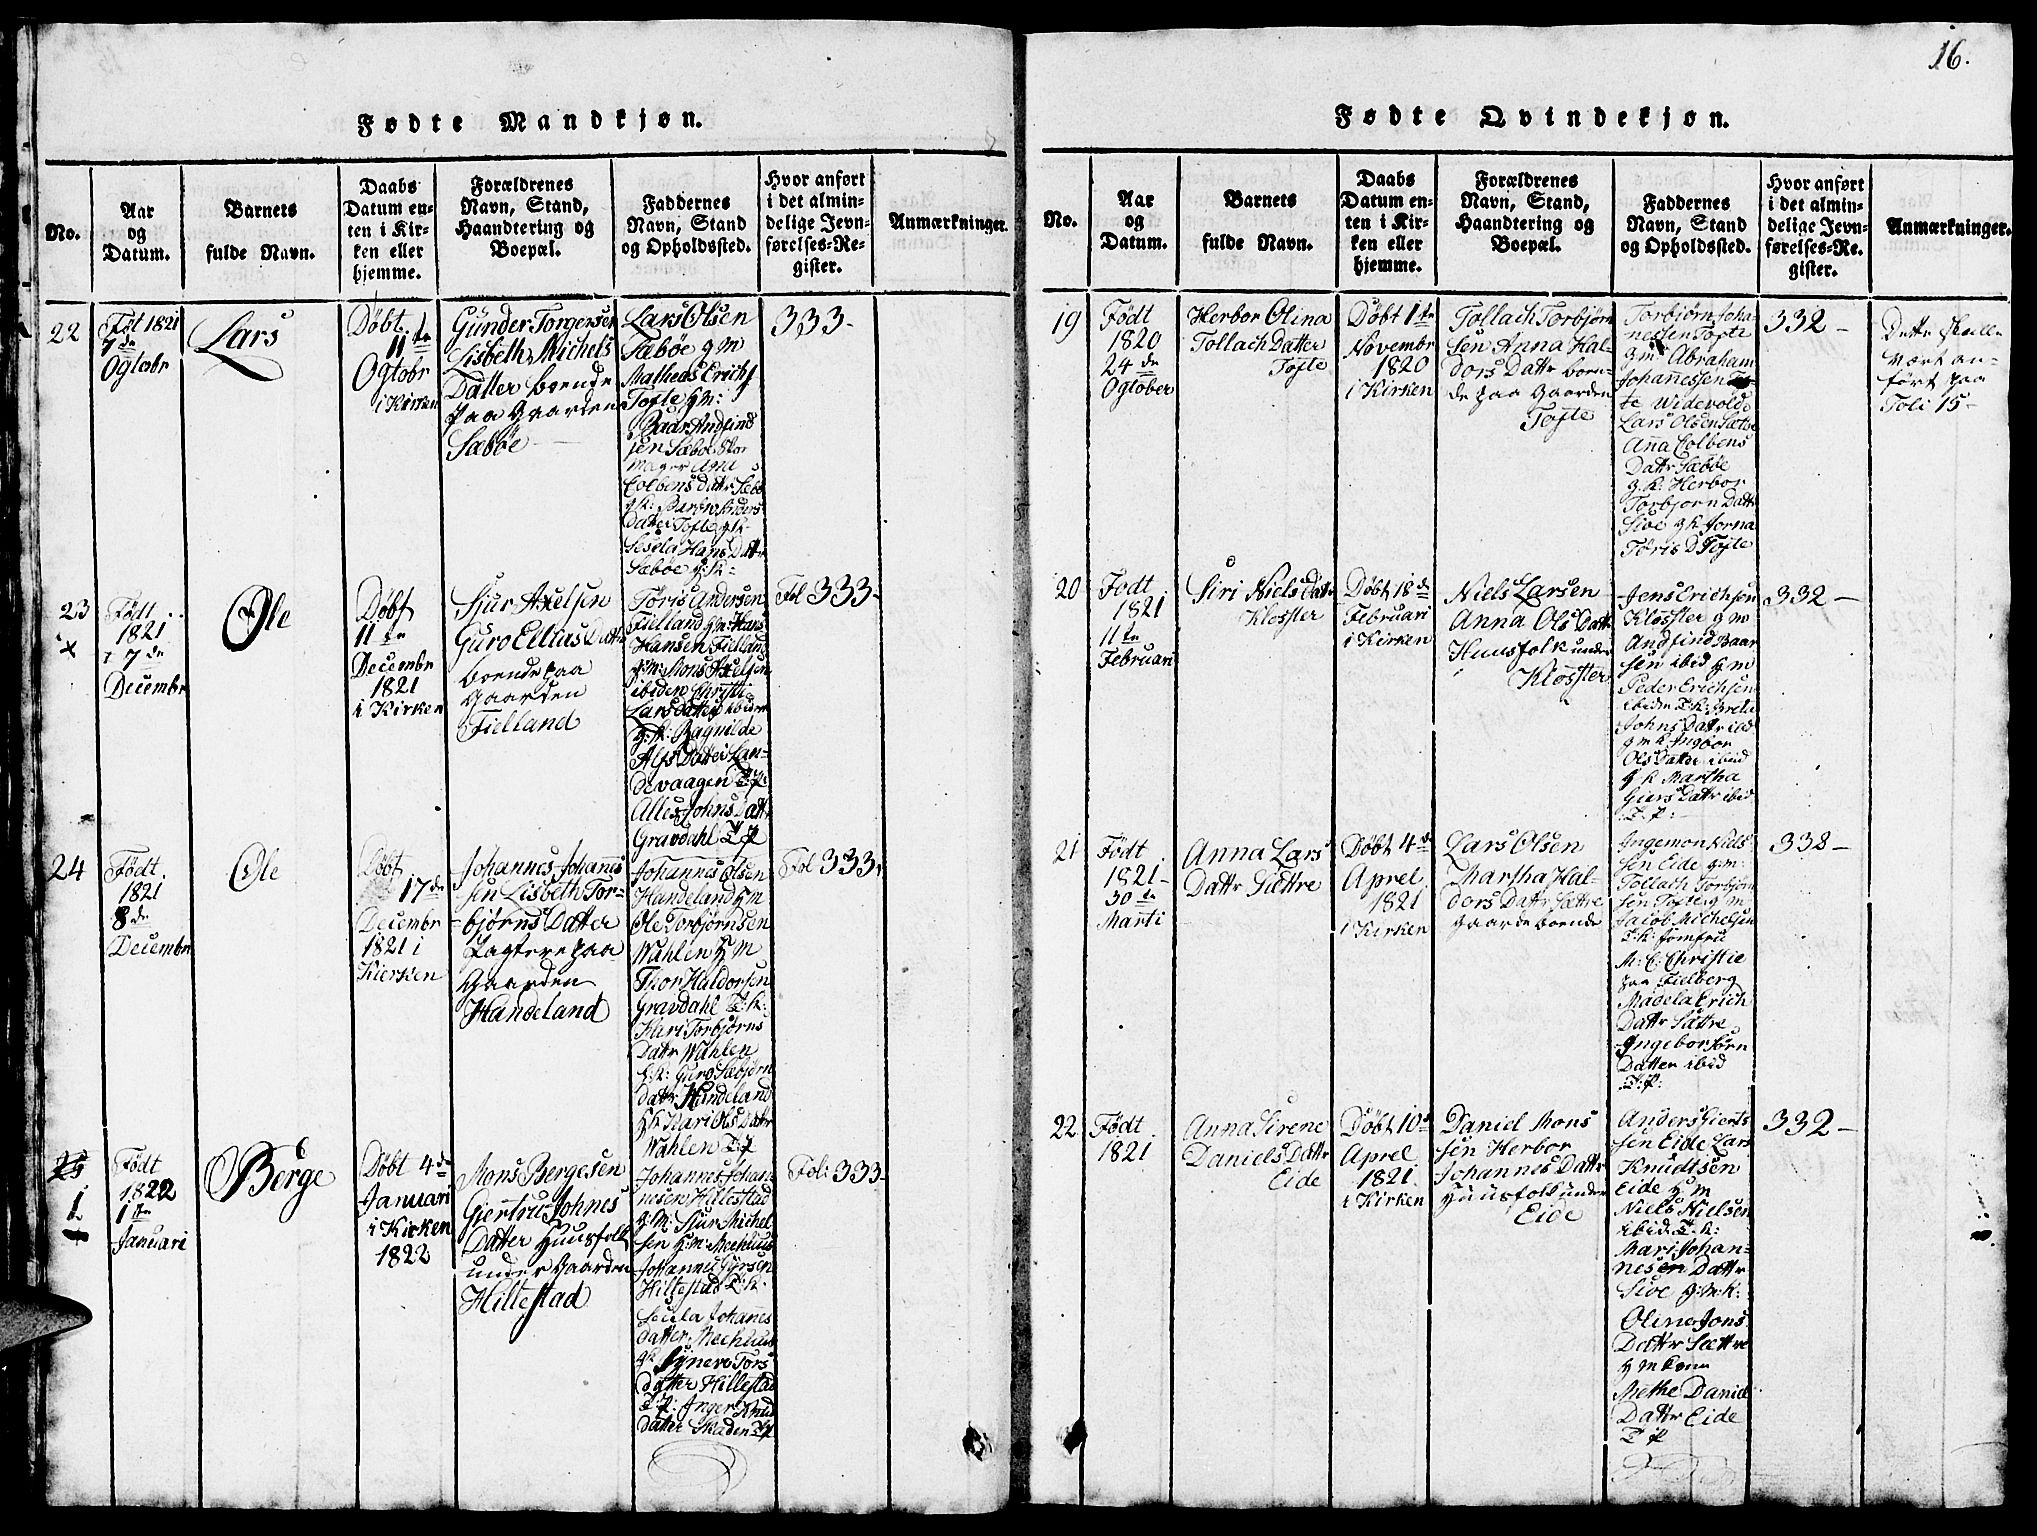 16.
Fødte Mandkjøn.
No.
Aar
og
Datum.
Barnets
fulde Navn.
Daabs
Datum en-
ten i Kir-
ken eller
hjemme.
Forældrenes
Navn, Stand,
Haandtering og
Boepæl.
Faddernes
Navn, Stand
og Opholdssted.
Hvor anført
i det almin-
delige Jevn-
førelses-Re-
gister.
Anmærkninger.
22
Føt 1821
7de
Ogtobr
Lars
Døbt
11te
Ogtobr
i Kirken
Gunder Torgersen
Lisbeth Michels
Datter boende
paa Gaarden
Sæbøe
Lars Olsen
Sæbøe g m
Mathias Erichs
Tofte g m:
Baar Andfind
sen Sæbøe
Colbens dattr Sæbø
Datter Tofte g k
Sesela Hans Dattr
Sæbøe g: k:
333-
23
x
Født
1821
7de
Decembr
Ole
Døbt
11te
Decembr
1821
i Kirken
Sjur Axelsen
Guro Ellius Dattr
boende paa
Gaarden
Fielland
Toris Andersen
Fielland g m: Hans
Hansen Fielland
g: m: Mons Axelsen
ibiden Christi
Lars datter ibidm
g: k: Ragnilde
Alfs Datter Lan-
devaagen T: p:
Alles Johns Dattr
Gravdahl T p
Fol 333-
24
Født
1821
8de
Decembr
Ole
Døbt
17de
Decembr
1821 i
Kirken
Johannes Johannes
sen Lisbeth Tor-
bjørns Datter
Pagtere paa
Gaarden
Handeland
Johannes Olsen
Handeland g m
Ole Torbjørnsen
Wahlen g m
Thor Haldorsen
Gravdahl T: k:
Kari Torbjørns
Dattr Wahlen
g: k: Guro Sæbjørn
dattr Handeland
g k Kari Ols Dattr
Wahlen T p
Fol 333.
25
1
Født
1822
1te
Januari
Berge
Døbt 4de
Januari
i Kirken
1822
Mons Bergesen
Giertru Johnes
Datter Huusfolk
under Gaarden
Hillestad
Johannes Johan-
nesen Hillestad
g: m: Sjur Michel
sen g: m: Meehuus
Johannes
Hillestad T: k:
Secela Johannes
datter Meehuus
g k Synneve Tors
datter Hillestad
T: p: Inger Knud
datter Skaden T p
Fol: 333-
Fødte Qvindekjøn.
No.
Aar
og
Datum.
Barnets
fulde Navn.
Daabs
Datum en-
ten i Kir-
ken eller
hjemme.
Forældrenes
Navn, Stand,
Haandtering og
Boepæl.
Faddernes
Navn, Stand
og Opholdssted.
Hvor anført
i det almin-
delige Jevn-
førelses-Re-
gister.
Anmærkninger.
19
Født
1820
24de
Ogtober
Herbor Olina
Tollach Datter
Tofte
Døbt 1te
Novembr
1820
i Kirken
Tollach Torbjørn
sen Anna Hal-
dors Dattr boen-
de paa Gaarden
Tofte
Torbiørn Joha
nesen Tofte
g m Abraham
Johannessen
Widevold
Lars Olsen Sætre
Anna Colbens
Dattr Sæbøe
g. k: Herbor
Torbjorn Dattr
Sioe g k Jorna
Toris D Tofte
332-
Dette skulle
vært an-
ført paa
Foli 15-
20
Født
1821
11te
Februari
Siri Niels Dattr
Kloster
Døbt 18de
Februari
i Kirken
Niels Larsen
Anna Ols Dattr
Huusfolk under
Kloster
Jens Erichsen
Kloster g m
Andfind Baar
sen ibid g m
Peder Erichsen
ibidm T: k: Brete
Johns Dattr ibid
g m k Ingbor
Ols Datter ibid
g k Martha
Giers Dattr ibid
T. p:
332-
21
Født
1821-
30te
Marti
Anna Lars
Dattr Sættre
Døbt 4de
Aprel
1821
i Kirken
Lars Olsen
Martha Hal-
dors Dattr Sættre
Gaarde boende
Ingemon Niels
sen Eide g: m:
Tollach Torbjørn
sen Tofte g: m
Jacob Michelsen
T: k: Jomfru
M: C: Christie
paa Fielberg
Madela Erich
Dattr Sættre
Ingebor Jørn
Datter ibid
T: p:
332-
22
Født
1821
Anna Sirene
Daniels Dattr
Eide
Døbt 10de
Aprel
1821
i Kirken
Daniel Mons
sen Herbor
Johannes Dattr
Huusfolk under
Eide
Anders Gierts
sen Eide Lars
Knudtsen
Eide g m
Niels Nielsen
ibid: T: k:
Mari Johan-
nesen Dattr
Sioe g: m: k:
Oline Jons
Dattr Sættre
g m kone
Methe Daniel
Dattr Eide
T p
332-